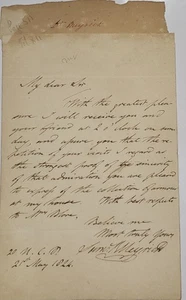 My dear Sir
With the greatest plea-
sure I will receive you and
your friend at 2 o'clock on sun-
day, and assure you that the re-
petition of your visits I regard as
the strongest proof of the sincerity
of that admiration you are pleased
to express of the collection
at my house. With best respects
to Mr
Believe me
Most truly Yours
Sam. R. Meyrick
20 U. C. P.
21st May 1824.